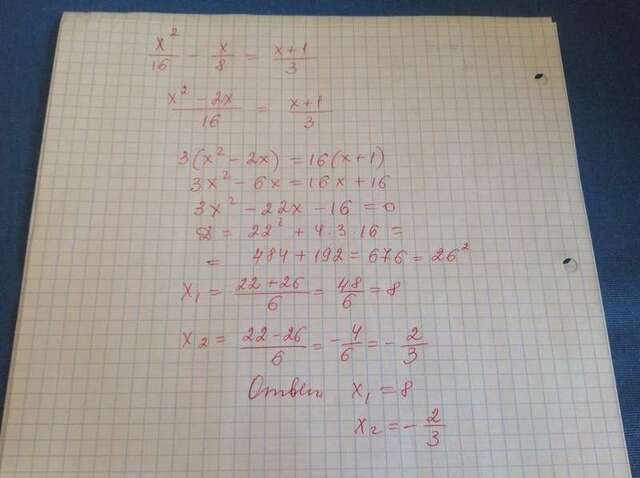 x²/16 - x/8 = x+1/3
x² - 2x/16 = x+1/3
3(x² - 2x) = 16(x+1)
3x² - 6x = 16x + 16
3x² - 22x - 16 = 0
D = 22² + 4·3·16 =
= 484 + 192 = 676 = 26²
x₁ = 22+26/6 = 48/6 = 8
x₂ = 22-26/6 = -4/6 = -2/3
Ответ x₁ = 8
x₂ = -2/3